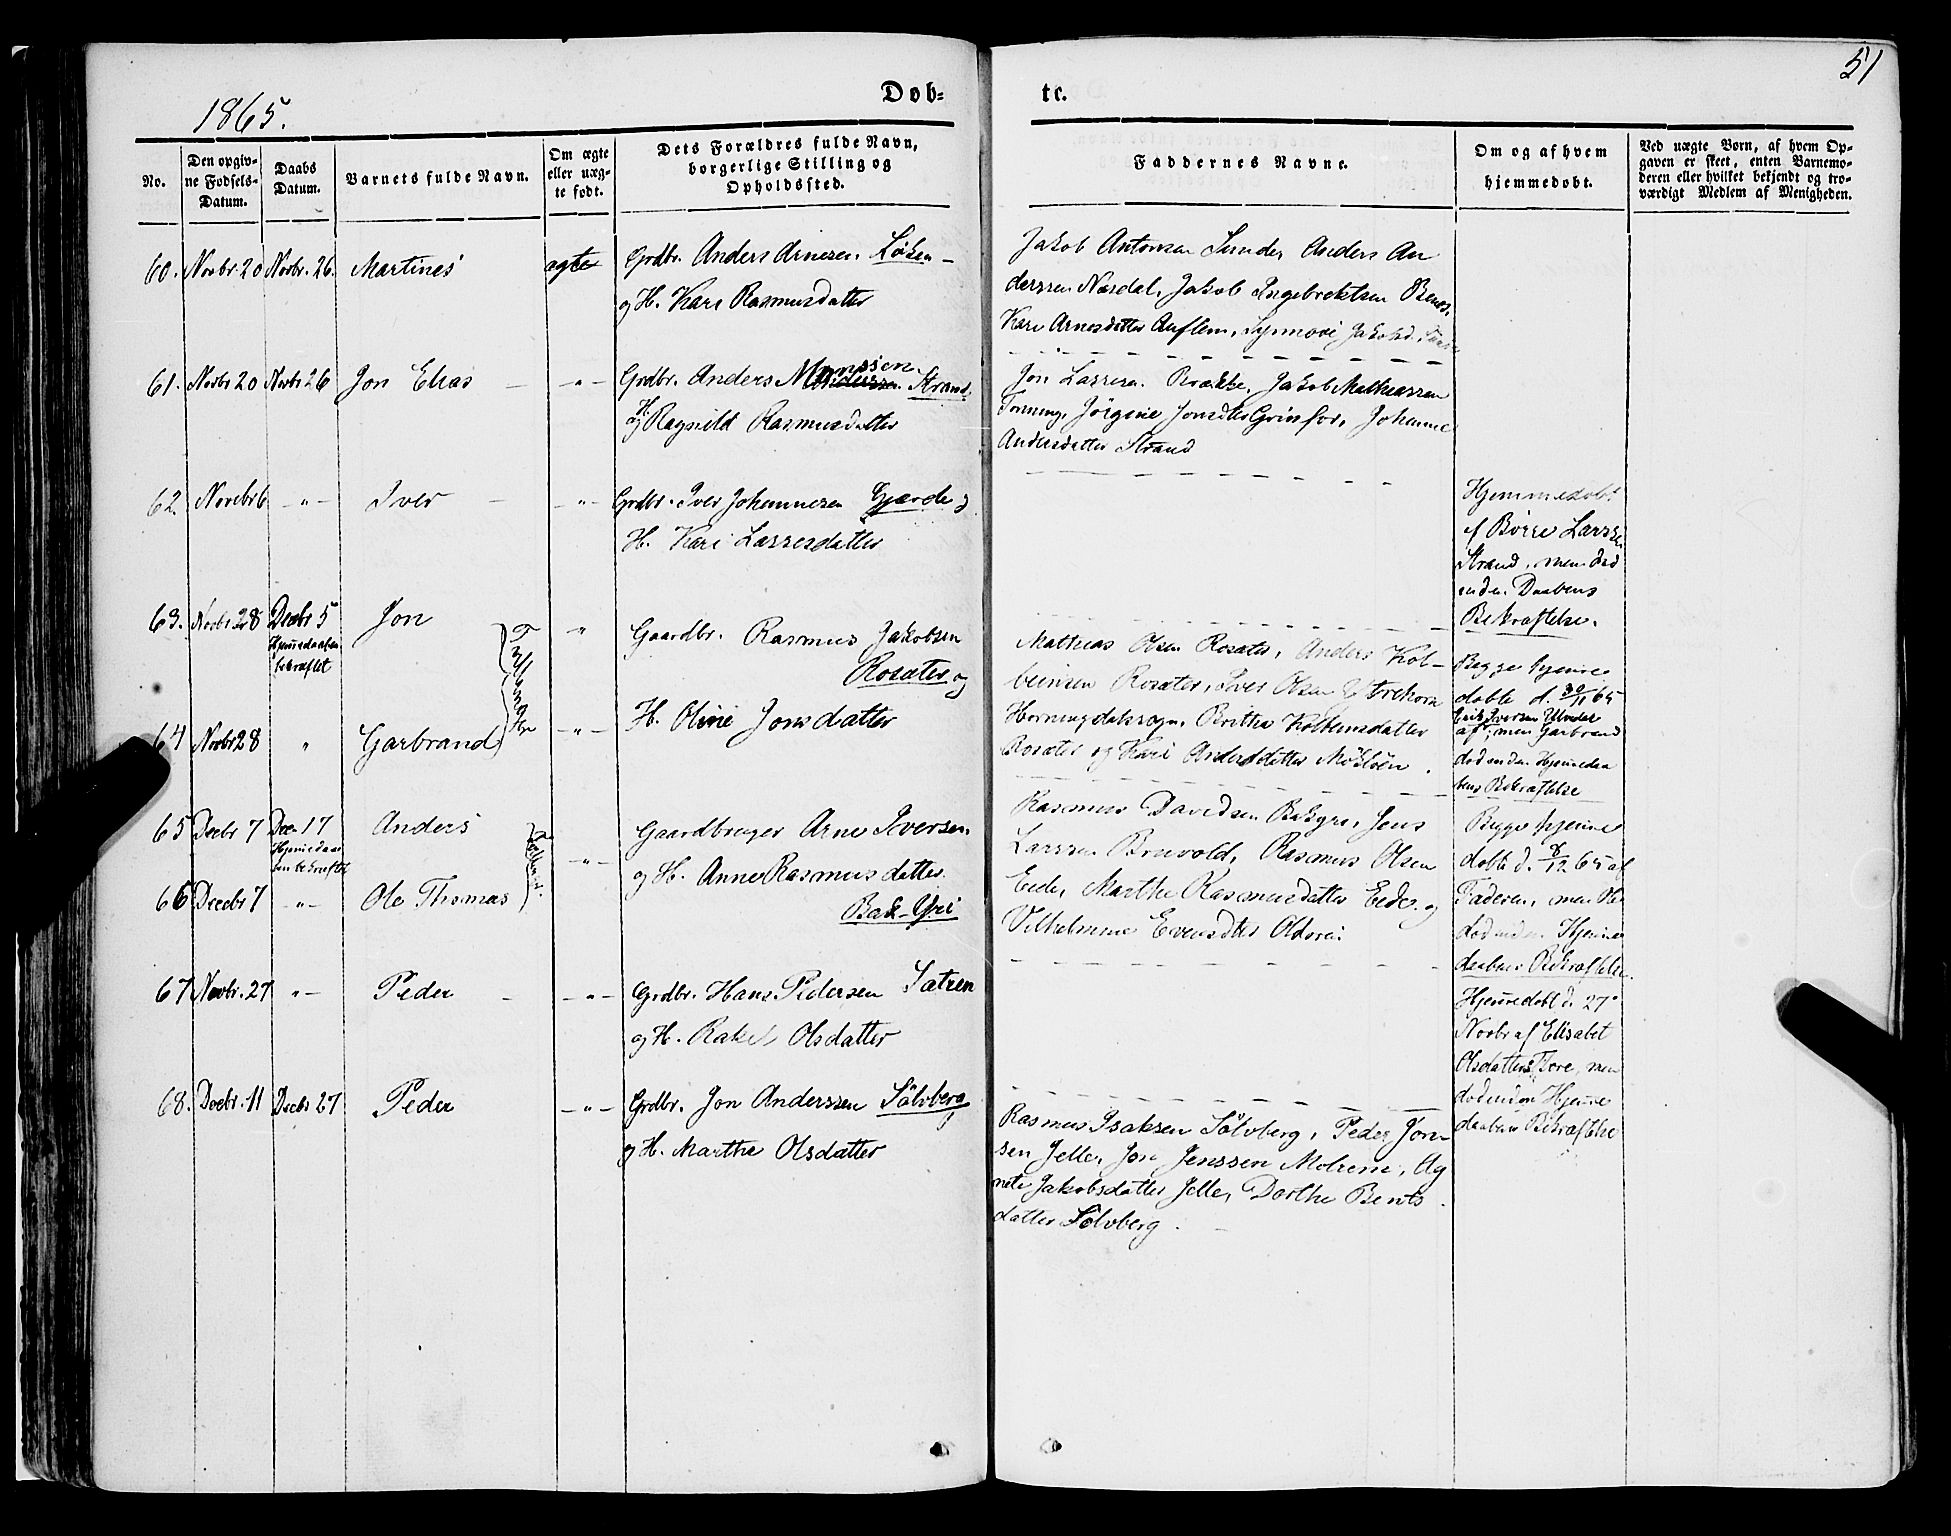 51
1865.
Døb-
te.
No.
Den opgiv-
ne Fødsels-
Datum.
Daabs
Datum.
Barnets fulde Navn.
Om ægte
eller uæg-
te født.
Dets Forældres fulde Navn,
borgerlige Stilling og
Opholdssted.
Faddernes Navne.
Om og af hvem
hjemmedøbt.
Ved uægte Børn, af hvem Op-
gaven er skeet, enten Barnemo-
deren eller hvilket bekjendt og tro-
værdigt Medlem af Menigheden.
60. Novbr 20 Novbr. 26. Martines ægte Grdbr. Anders Arnesen Løken -
og H. Kari Rasmusdatter
Jakob Antonsen Sunde, Anders An
derssen Nærdal, Jakob Ingebrektsen Benes,
Kari Arnesdatter Auflem, Synnove Jakobsd.
61. Novbr 20 Novbr 26 Jon Elias - - " - Grdbr. Anders Monssen Strand
og H. Ragnild Rasmusdatter
Jon Larssen Brække, Jakob Mathiassen
Tonning, Jørgine Jonsdtr Grinfor, Johanne
Andersdatter Strand
62. Novbr 6 - " - Iver - - " - Grdbr. Iver Johannesen Gjærde og
H. Kari Larssesdatter
Hjemmedøbt
af Børre Larssen
Strand, men død
inden Daabens
Bekræftelse.
63. Novbr 28 Decbr 5 Jon " Gaardbr. Rasmus Jakobsen
Hjemmedaaben
bekræftet
Rosæter og
64 Novbr 28 " Garbrand - " - H. Oline Jonsdatter
Tvillingbrødre
Mathias Olsen Rosæter, Anders Kol-
beinsen Rosæter, Iver Olsen Ytrehorn
Hornindalssogn, Britha Kolbeinsdatter
Rosæter og Kari Andersdatter Mökloén.
Begge hjemme
døbte d. 30/11 65
af Erik Iversen Ulvedal
men Garbrand
død inden Hjemmedaa
bens Bekræftelse
65 Decbr 7 Dec 17 Anders - " - Gaardbruger Arne Iversen
Hjemmedaa
ben bekræftet
og H. Anne Rasmusdatter
66 Decbr 7 - " - Ole Thomas
Bak-Yri
Rasmus Davidsen Bakyri, Jens
Larssen Bruvold, Rasmus Olsen
Eede, Marthe Rasmusdatter Eede og
Vilhelmine Evensdtr Oldøren
Begge hjemme
døbte d. 8/12 65 af
Faderen, men Ole
død inden Hjemme
daabens Bekræftelse.
67 Novbr. 27 " - Peder - - " - Grdbr. Hans Pedersen Sætren
og H. Rakel Olsdatter
Hjemmedøbt d. 27de
Novbr af Elisabet
Olsdatter Flore, men
død inden Hjemme
daabens Bekræftelse
68. Decbr. 11 Decbr 27 Peder - " - Grdbr. Jon Anderssen Sölvberg
og H. Marthe Olsdatter
Rasmus Isaksen Sölvberg, Peder Jon-
sen Jelle, Jon Jenssen Melreme, Ag
nete Jakobsdatter Jelle, Dorthe Bents
datter Sölvberg.